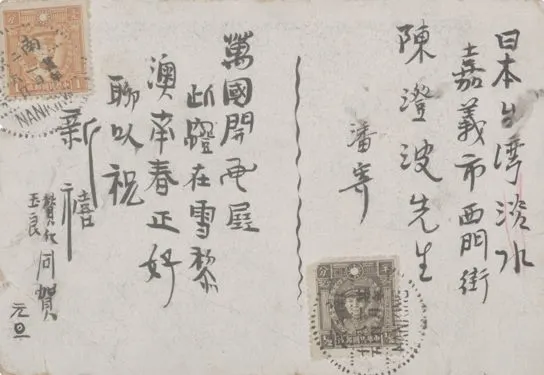 日本台湾淡水
嘉義市西門街
陳澄波先生
潘寄
萬國開画展
在雪黎
澳南春正好
聊以祝
新禧
贊化
玉良
同賀
元旦
NANKING
1
½